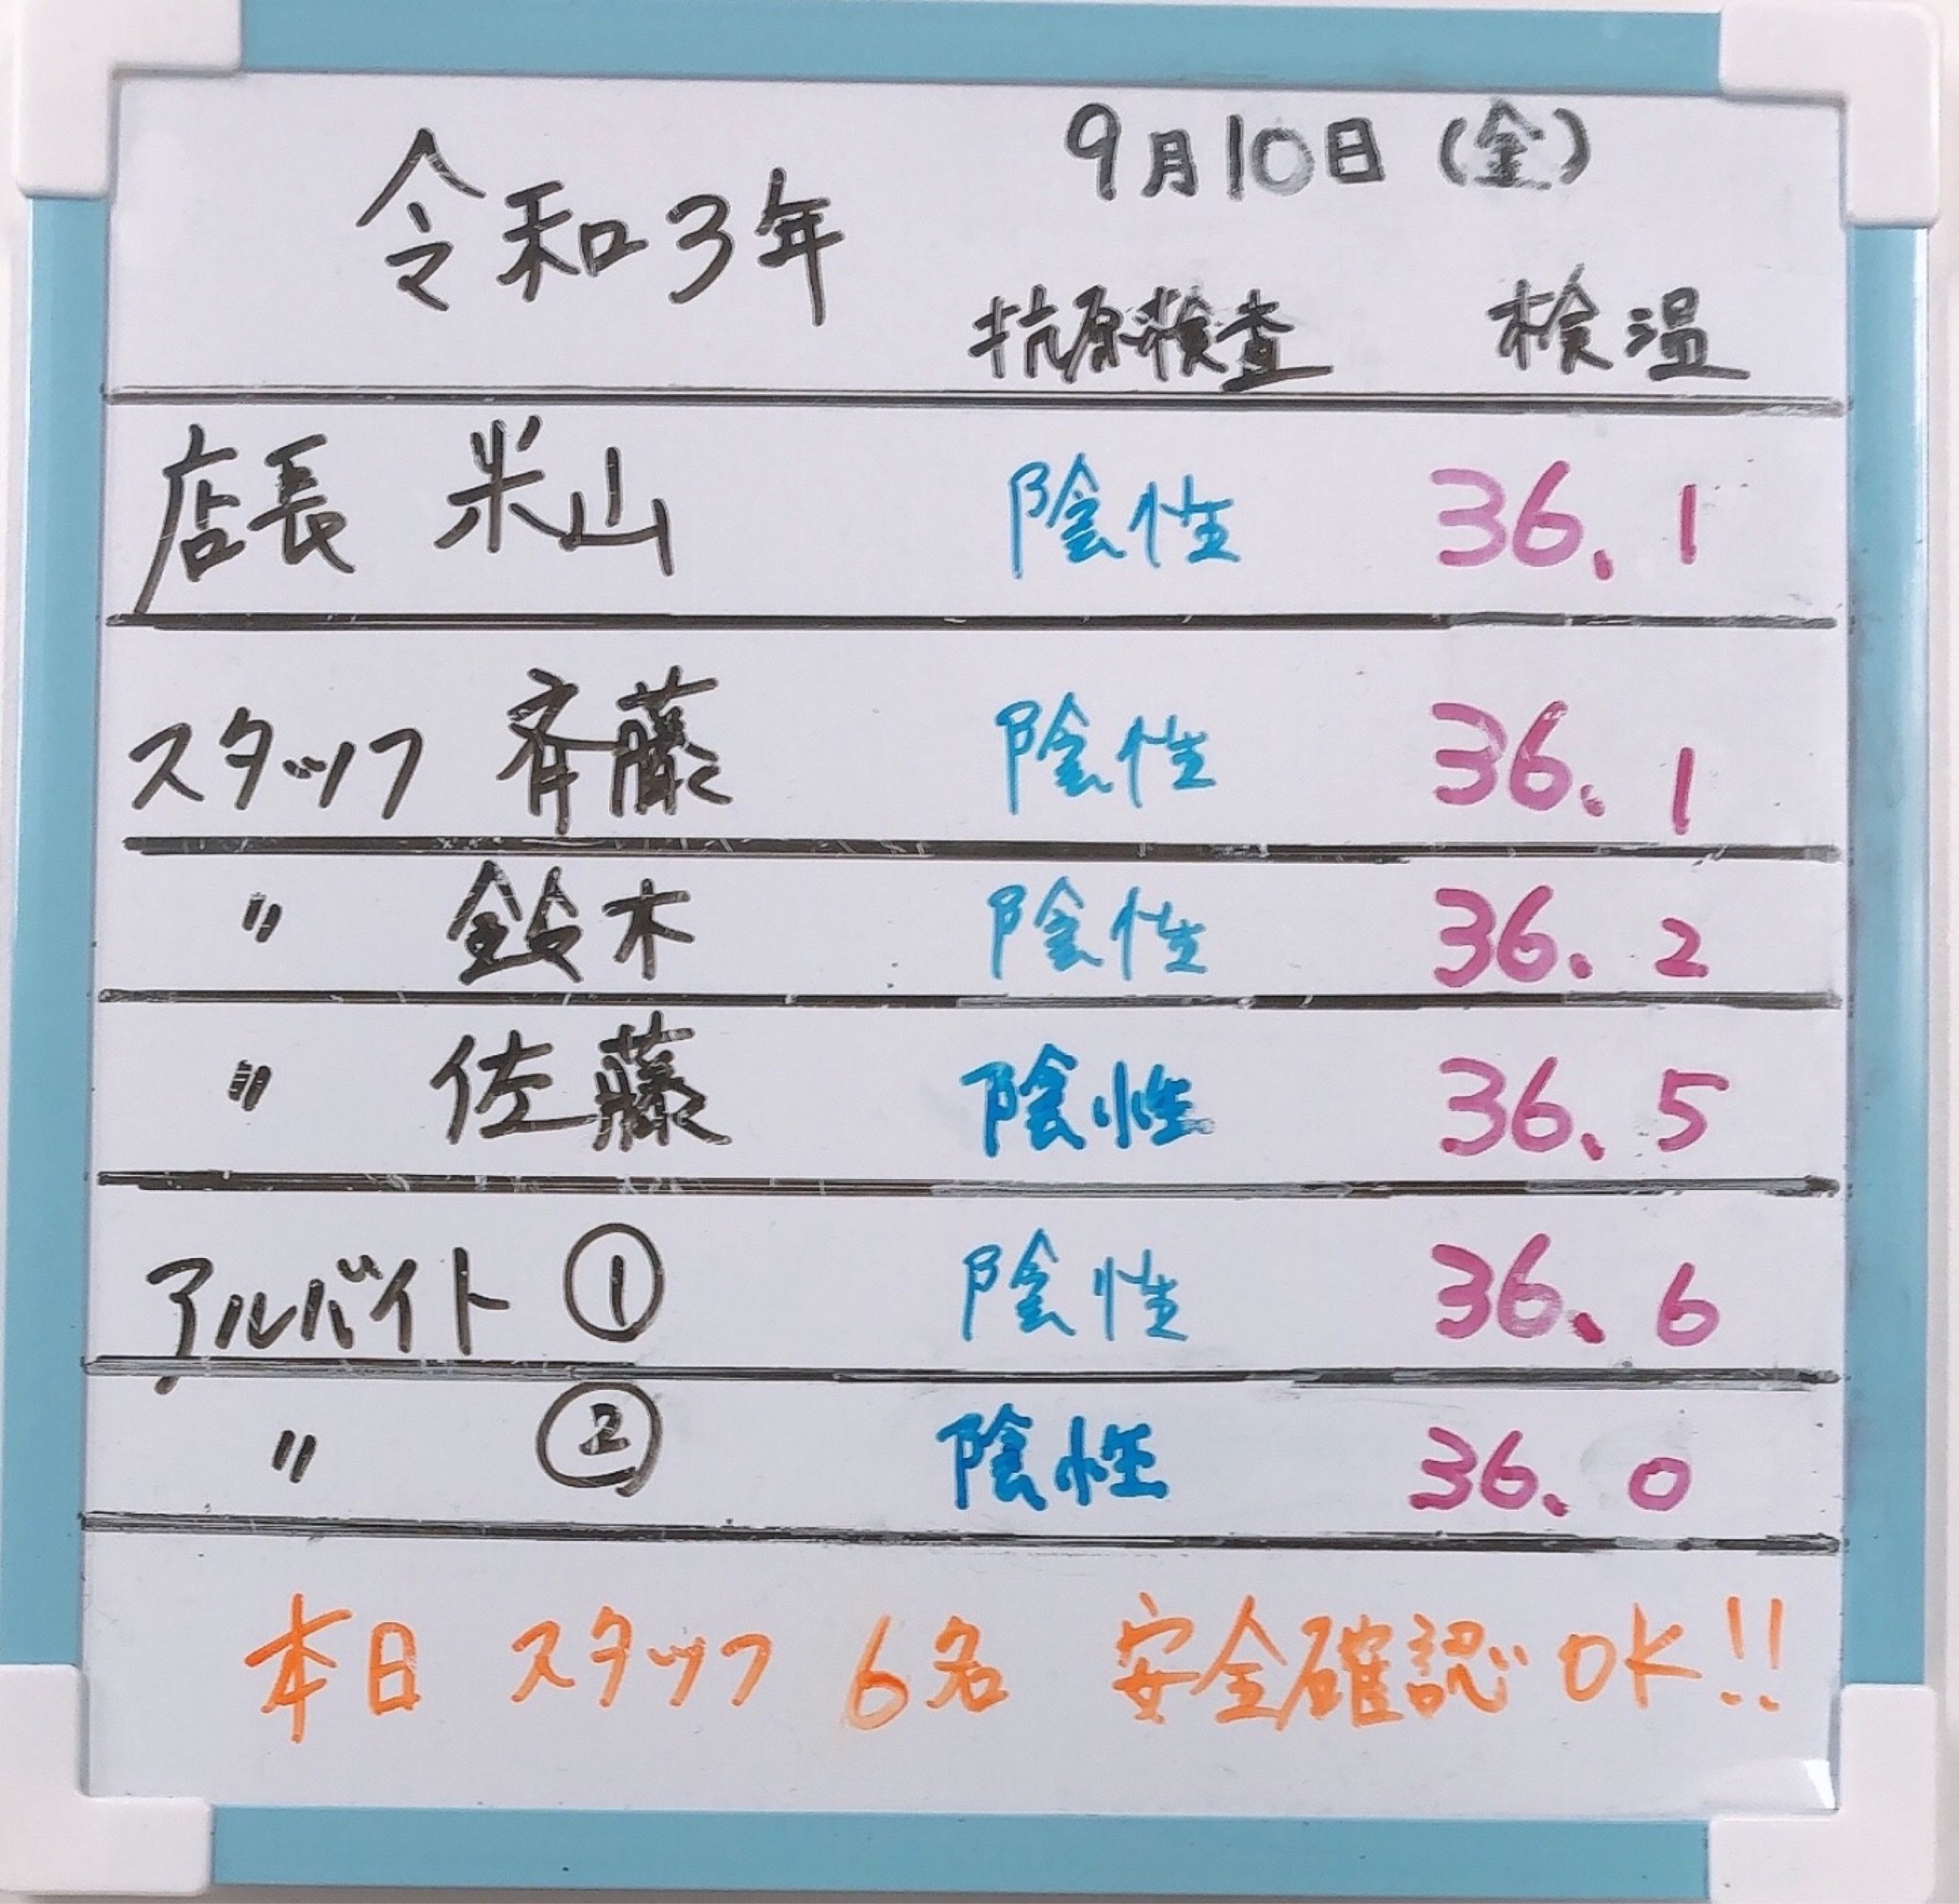 令和3年 9月10日(金)
抗原検査 検温
店長 米山 陰性 36.1
スタッフ 斉藤 陰性 36.1
〃 鈴木 陰性 36.2
〃 佐藤 陰性 36.5
アルバイト ① 陰性 36.6
〃 ② 陰性 36.0
本日 スタッフ 6名 安全確認OK!!